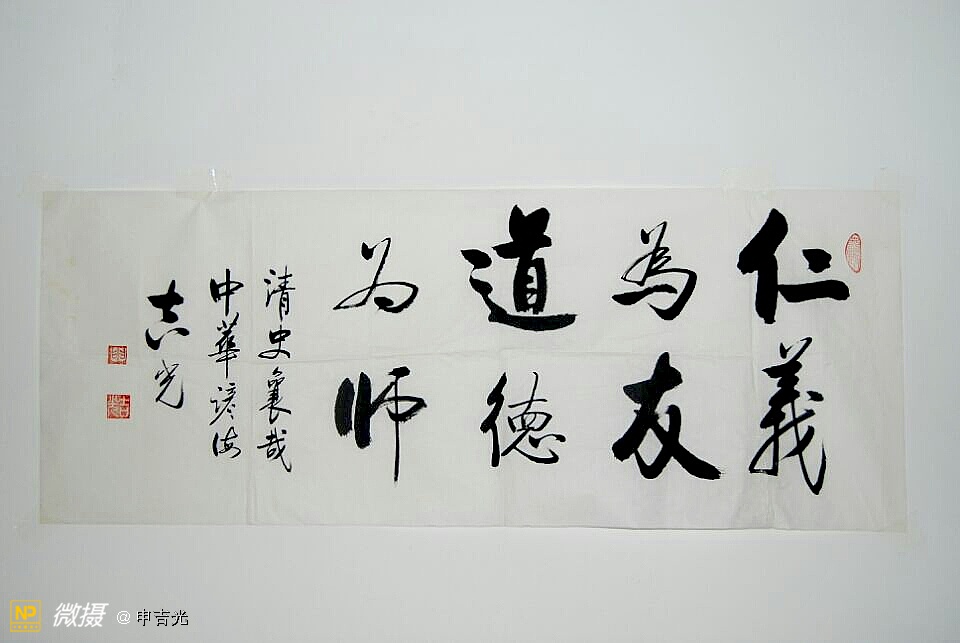 仁義
為友
道德
为师
清史襄哉
中華諺海
吉光
吉光
NP 微摄 @申吉光